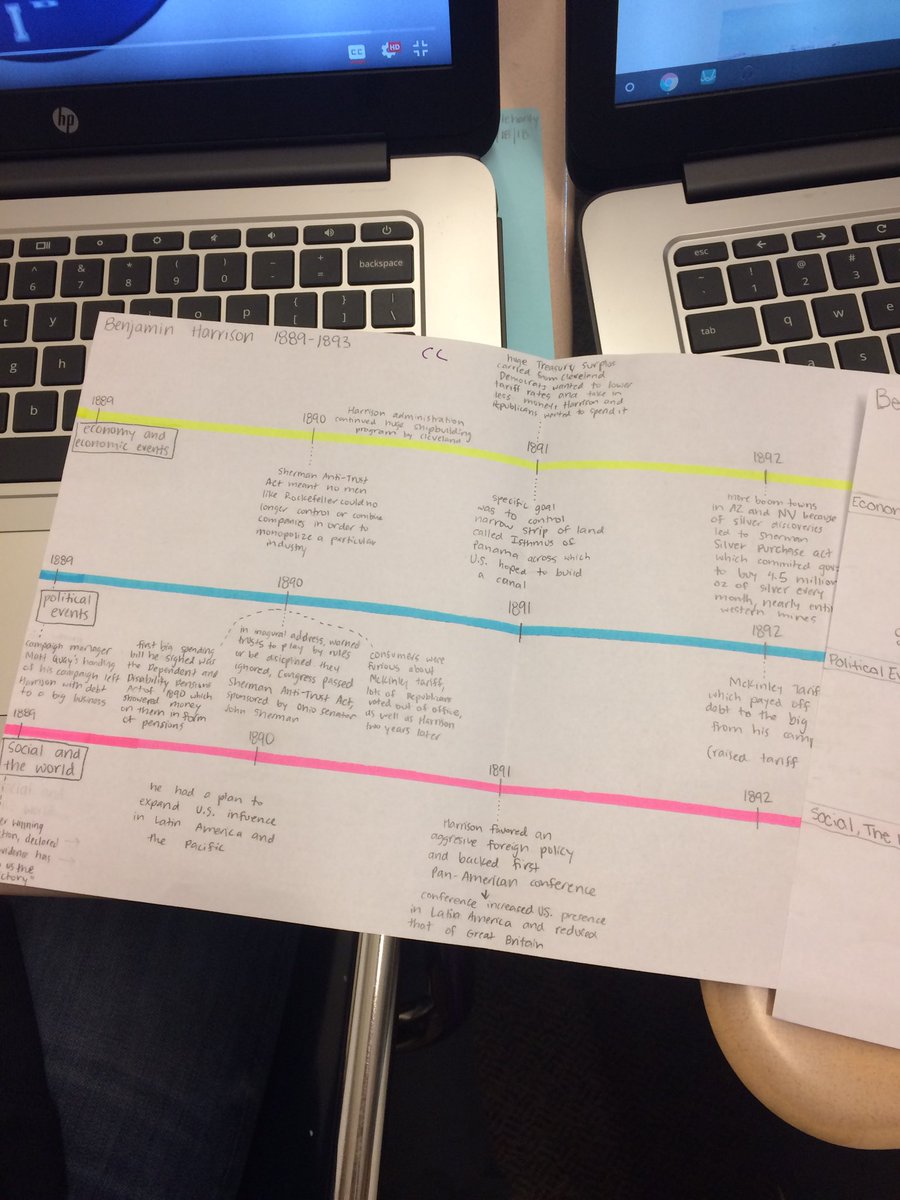 CC HD
hp
richarity
/18/18
backspace
^ 6 & 7 * 8 ( 9 ) 0 _ - + =
t y o p { [ } ] | \
g h
b
esc
~ ` ! 1 @ 2 # 3
tab q w e
a s
Benjamin Harrison 1889-1893
CC
huge Treasury Surplus
carried from Cleveland
Democrats wanted to lower
tariff rates and take in
less money, Harrison and
Republicans wanted to spend it
1889
economy and
economic events
1890
Harrison administration
continued huge shipbuilding
program by Cleveland
1891
1892
Sherman Anti-Trust
Act meant no men
like Rockefeller could no
longer control or combine
companies in order to
monopolize a particular
industry
specific goal
was to control
narrow strip of land
called Isthmus of
Panama across which
U.S. hoped to build
a canal
more boom towns
in AZ and NV because
of silver discoveries
led to Sherman
Silver Purchase act
which commited gov
to buy 4.5 million
oz of silver every
month, nearly enti
western mines
1889
political
events
1890
1891
1892
campaign manager
Matt Quay's handling
of his campaign left
Harrison with debt
to a big business
first big spending
bill he signed was
the Dependent and
Disability Pensions
Act of 1890 which
showered money
on them in form
of pensions
in inagural address, warned
trusts to play by rules
or be diciplined they
ignored, Congress passed
Sherman Anti-Trust Act,
sponsored by Ohio Senator
John Sherman
consumers were
furious about
McKinley tariff,
lots of Republicans
voted out of office,
as well as Harrison
two years later
McKinley Tarif
which payed off
debt to the big
from his camp
(raised tariff
1889
social and
the world
1890
1891
1892
er winning
ction, declared
vidence has
us the
ictory"
he had a plan to
expand U.S. infuence
in Latin America and
the Pacific
Harrison favored an
aggresive foreign policy
and backed first
Pan-American conference
conference increased U.S. presence
in Latin America and reduced
that of Great Britain
Be
Econom
Political Ev
Social, The